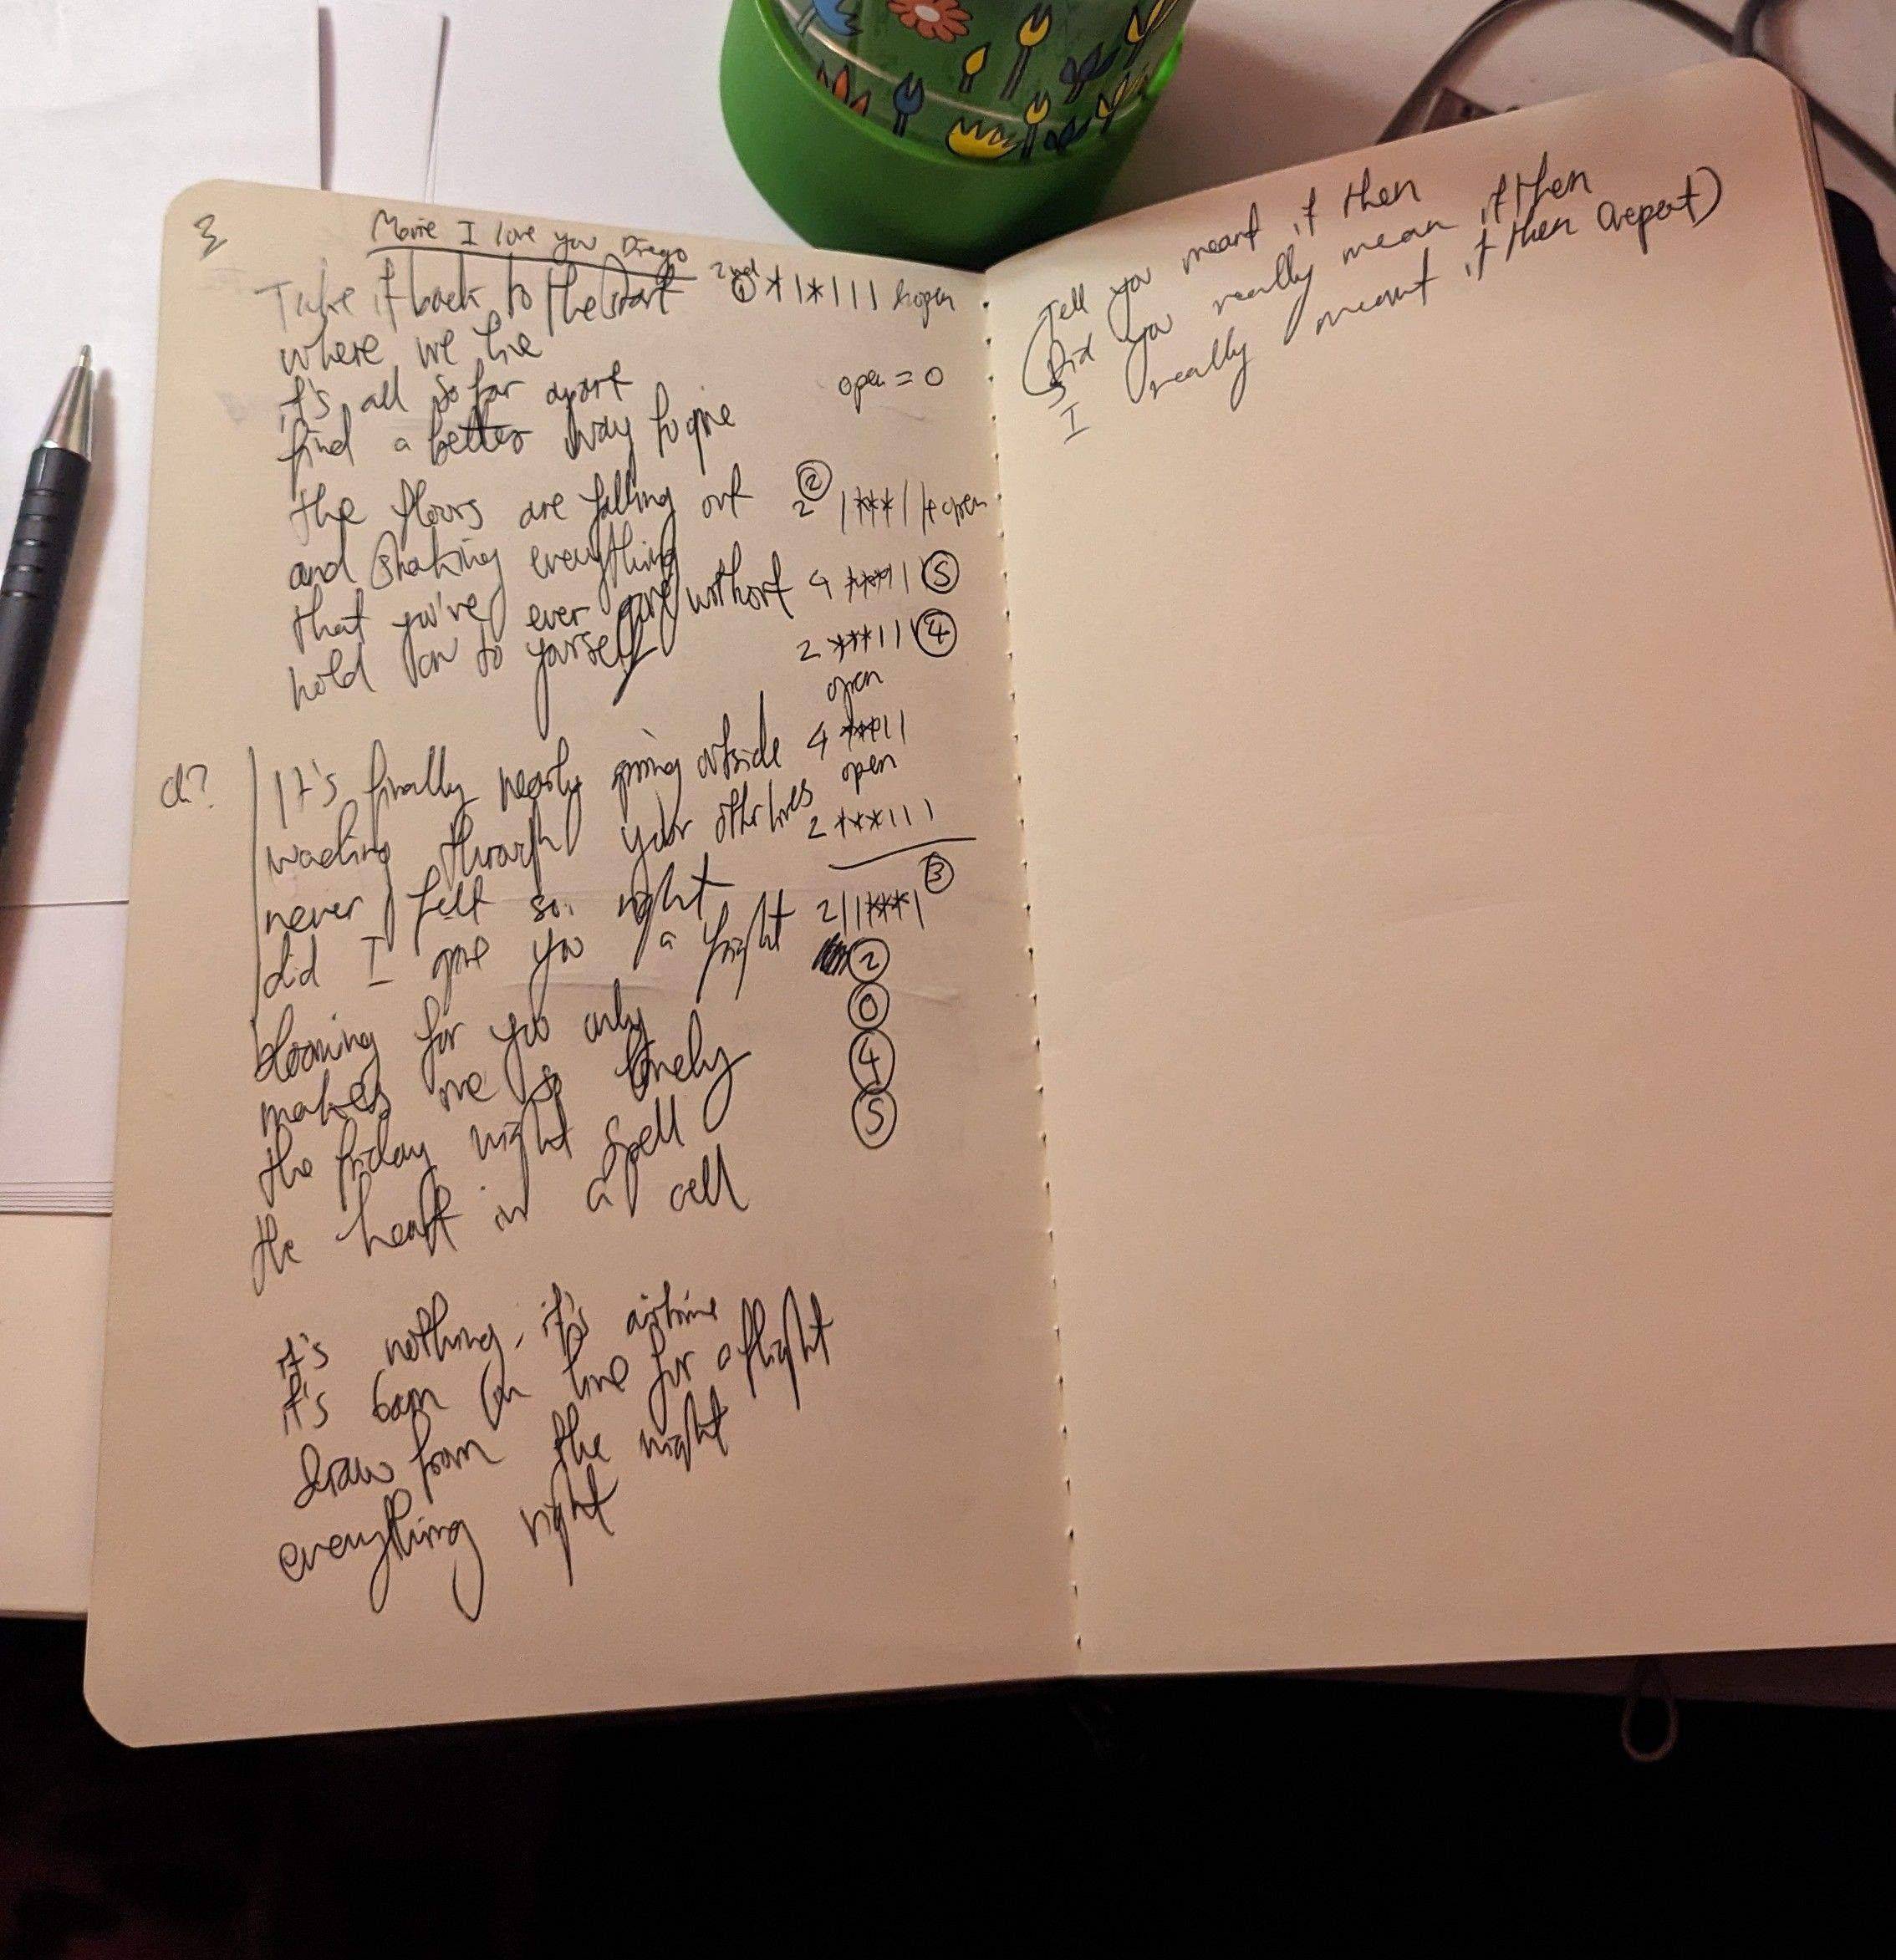 3
Movie I love you Diego
Take it back to the start 2nd ① *|*||| open
where we live
it's all so far apart open = 0
find a better way to give
the floors are falling out 2 ② |***|| + open
and shaking everything
that you've ever gone without 4 ***|| ⑤
hold on to yourself 2 ***||| ④
open
d? It's finally nearly spring outside 4 ***||
open
wading through your other lives 2 ***|||
never felt so right
did I give you a fright 2 ||***| ③
②
blooming for you only 0
makes me so lonely ④
the friday night spell ⑤
the heart in a cell
it's nothing, it's airtime
it's 6am in line for a flight
draw from the night
everything right
Tell you meant it then
(Did you really mean it then
I really meant it then (repeat)